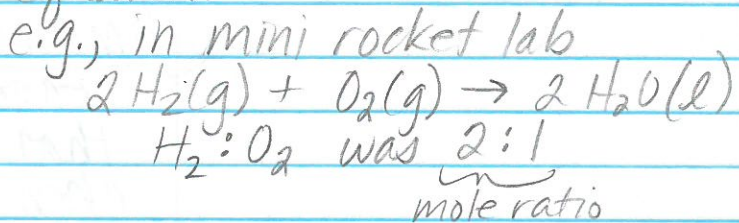 e.g., in mini rocket lab
2 H₂(g) + O₂(g) → 2 H₂O(l)
H₂ : O₂ was 2 : 1
mole ratio